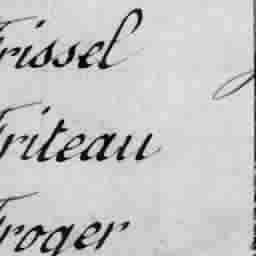 Frissel
Friteau
Froger